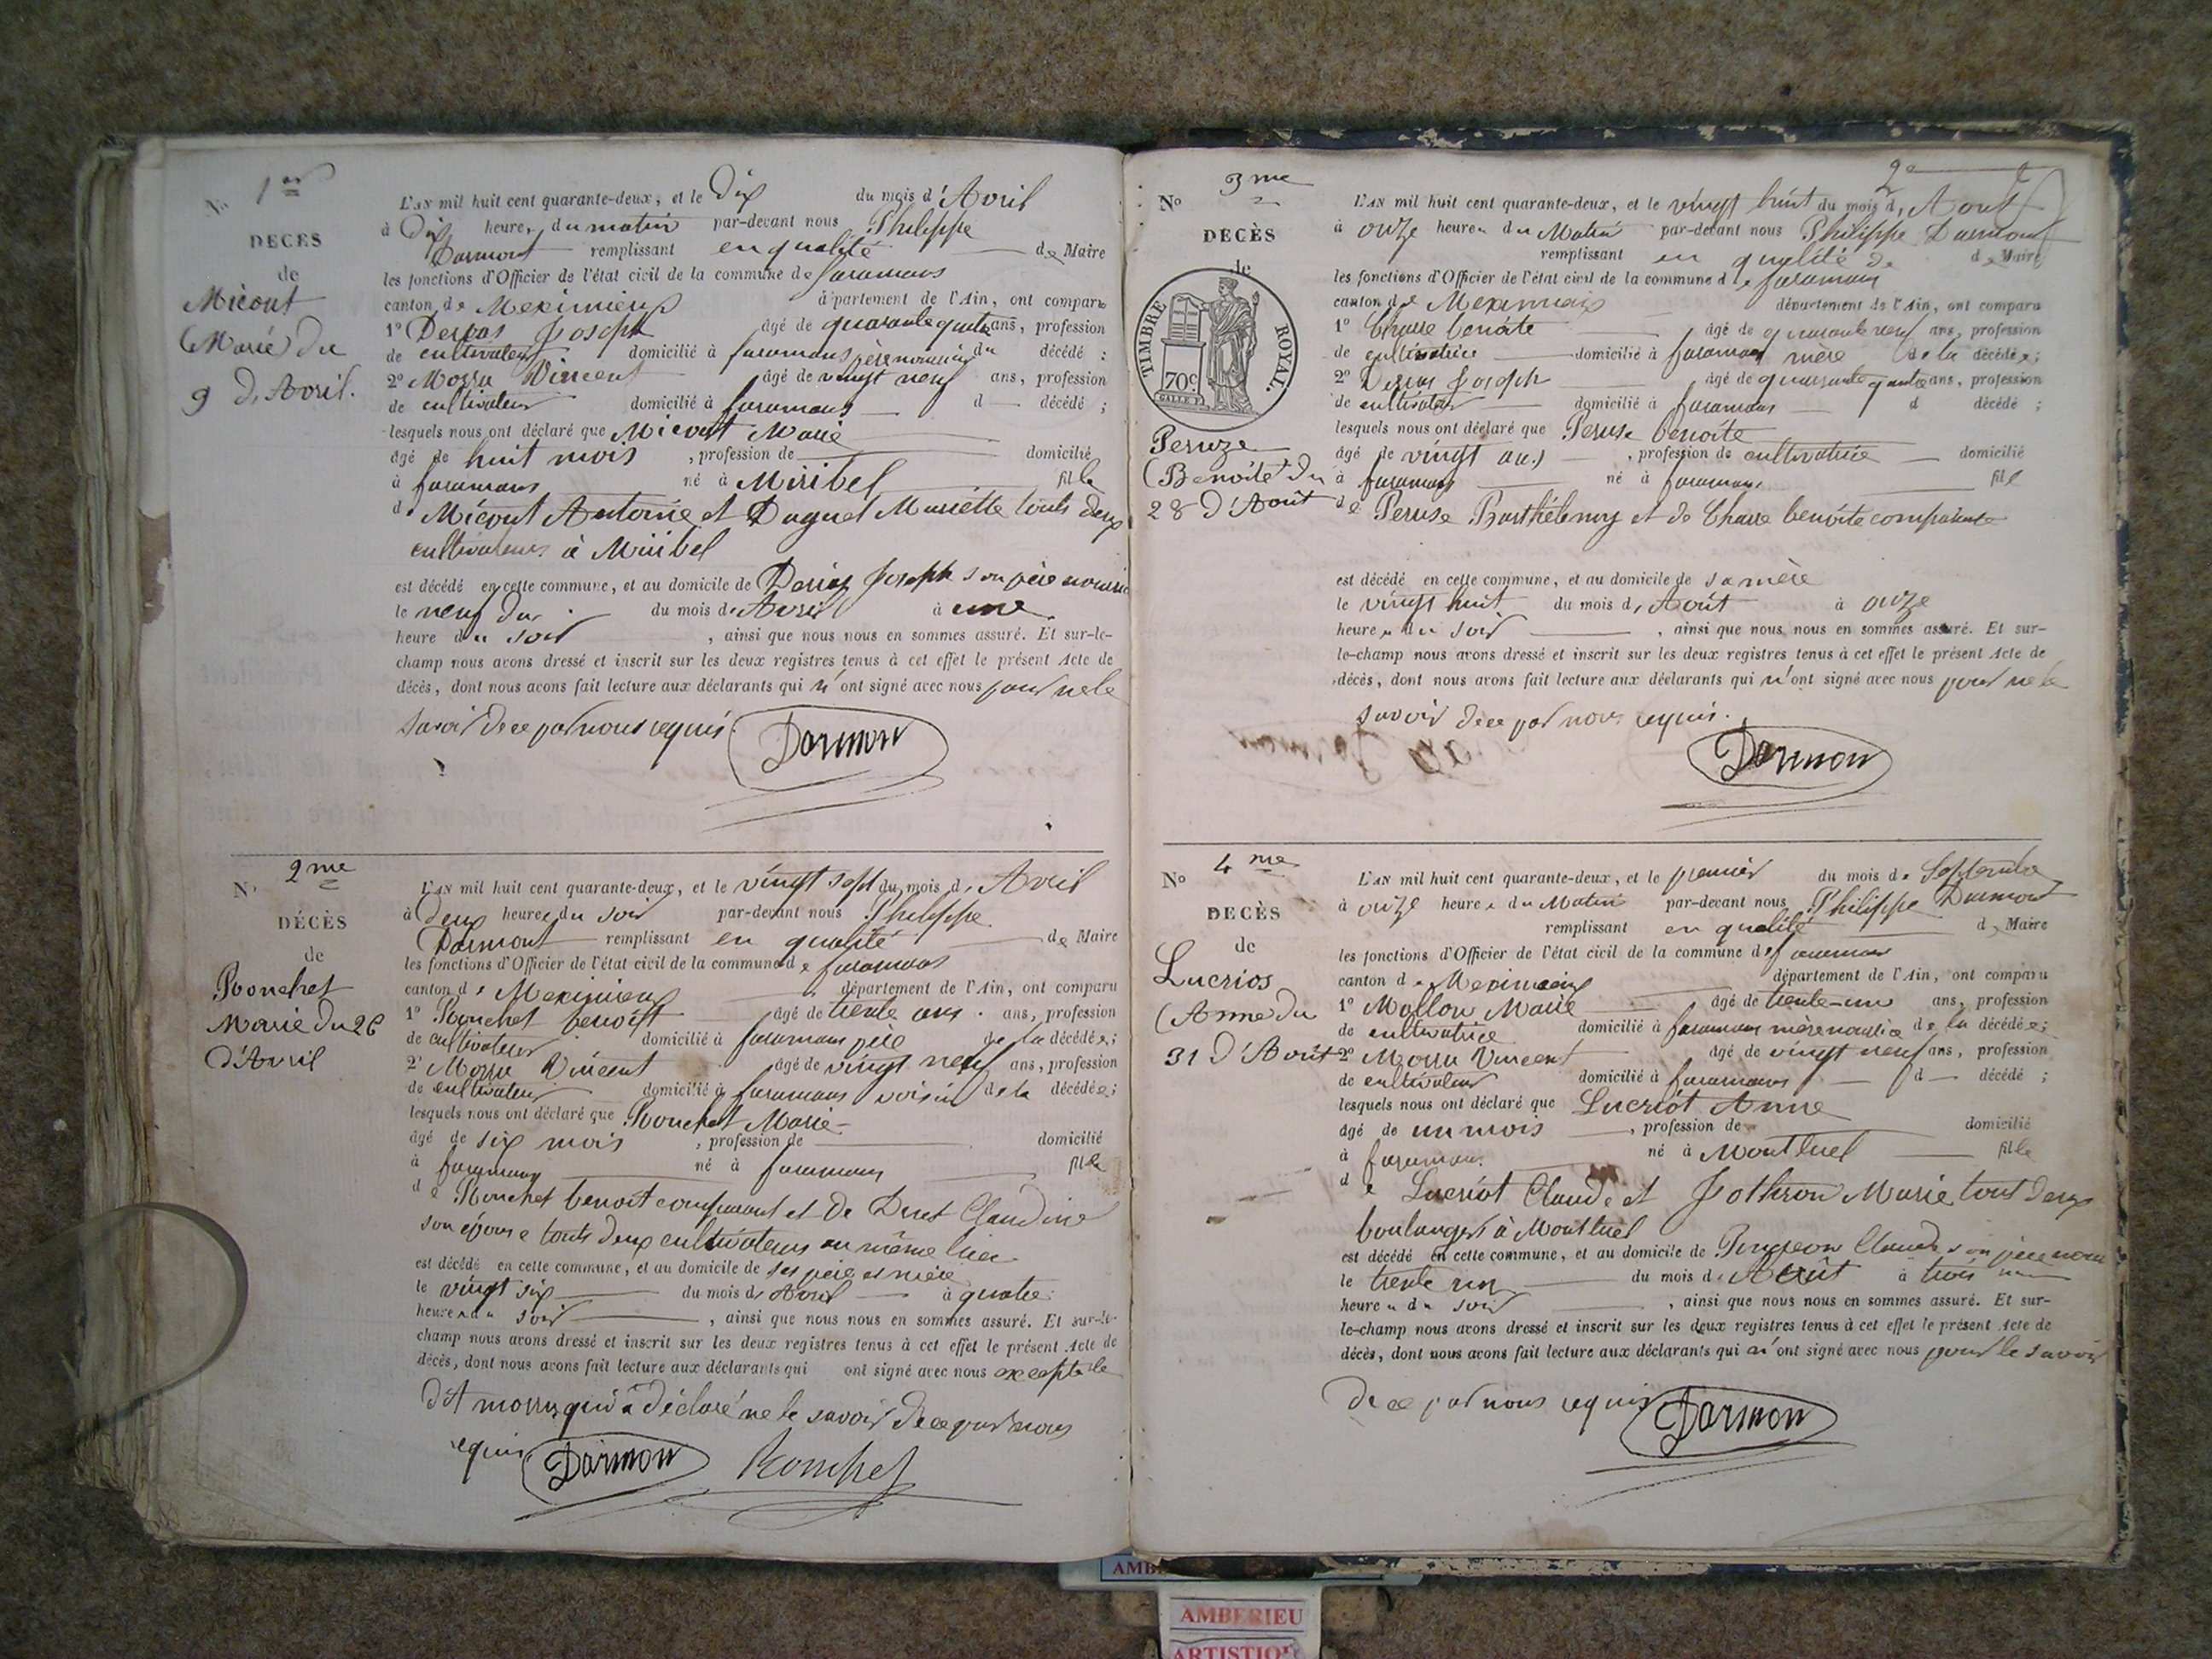 N° 1er
DÉCÈS
de
Micout
Marie du
9 d'Avril.
L'AN mil huit cent quarante-deux, et le Dix du mois d'Avril
à Dix heures du matin par-devant nous Philippe
Darmont remplissant en qualité de Maire
les fonctions d'Officier de l'état civil de la commune de faramans
canton de Meximieux département de l'Ain, ont comparu
1° Joseph âgé de quarante quatre ans, profession
de cultivateur domicilié à faramans père nouricier du décédé ;
2° Morru Vincent âgé de vingt neuf ans, profession
de cultivateur domicilié à faramans d décédé ;
lesquels nous ont déclaré que Micout Marie
âgé de huit mois , profession de domicilié
à faramans né à Miribel fille
de Micout Antoine et Duguet Mariette touts deux
cultivateurs à Miribel
est décédé en cette commune, et au domicile de Joseph son père nouricier
le neuf du du mois d'Avril à une
heure du soir , ainsi que nous nous en sommes assuré. Et sur-le-
champ nous avons dressé et inscrit sur les deux registres tenus à cet effet le présent Acte de
décès, dont nous avons fait lecture aux déclarants qui n'ont signé avec nous pour ne le
savoir de ce par nous requis.
Darmon
N° 2me
DÉCÈS
de
Ronchet
Marie du 26
d'Avril
L'AN mil huit cent quarante-deux, et le vingt sept du mois d'Avril
à Deux heures du soir par-devant nous Philippe
Darmont remplissant en qualité de Maire
les fonctions d'Officier de l'état civil de la commune de faramans
canton de Meximieux département de l'Ain, ont comparu
1° Ronchet benoît âgé de trente ans. ans, profession
de cultivateur domicilié à faramans père de la décédée ;
2° Morru Vincent âgé de vingt neuf ans, profession
de cultivateur domicilié à faramans voisin de la décédée ;
lesquels nous ont déclaré que Ronchet Marie
âgé de six mois , profession de domicilié
à faramans né à faramans fille
de Ronchet benoit comparant et de Claudine
son épouse touts deux cultivateurs au même lieu
est décédé en cette commune, et au domicile de ses père et mère
le vingt six du mois d'Avril à quatre
heures du soir , ainsi que nous nous en sommes assuré. Et sur-le-
champ nous avons dressé et inscrit sur les deux registres tenus à cet effet le présent Acte de
décès, dont nous avons fait lecture aux déclarants qui ont signé avec nous excepté le
dit morru qui a déclaré ne le savoir de ce par nous
requis
Darmon Ronchet
2e
N° 3me
DÉCÈS
de
TIMBRE ROYAL.
70c
Peruze
Benoîte du
28 d'Août
L'AN mil huit cent quarante-deux, et le vingt huit du mois d'Août
à onze heures du Matin par-devant nous Philippe Darmont
remplissant en qualité de de Maire
les fonctions d'Officier de l'état civil de la commune de faramans
canton de Meximieux département de l'Ain, ont comparu
1° benoite âgé de quarante neuf ans, profession
de cultivatrice domicilié à faramans mère de la décédée ;
2° Joseph âgé de quarante quatre ans, profession
de cultivateur domicilié à faramans d décédé ;
lesquels nous ont déclaré que Peruse benoite
âgé de vingt ans , profession de cultivatrice domicilié
à faramans né à faramans fil
de Peruse Barthélemy et de benoite comparante
est décédé en cette commune, et au domicile de sa mère
le vingt huit du mois d'Août à onze
heures du soir , ainsi que nous nous en sommes assuré. Et sur-
le-champ nous avons dressé et inscrit sur les deux registres tenus à cet effet le présent Acte de
décès, dont nous avons fait lecture aux déclarants qui n'ont signé avec nous pour ne le
savoir de ce par nous requis.
Darmon
N° 4me
DÉCÈS
de
Lucrios
Anne du
31 d'Août
L'AN mil huit cent quarante-deux, et le premier du mois de Septembre
à onze heures du Matin par-devant nous Philippe Darmont
remplissant en qualité de Maire
les fonctions d'Officier de l'état civil de la commune de faramans
canton de Meximieux département de l'Ain, ont comparu
1° Mollon Marie âgé de trente-un ans, profession
de cultivatrice domicilié à faramans mère nourrice de la décédée ;
2° Morru Vincent âgé de vingt neuf ans, profession
de cultivateur domicilié à faramans d décédé ;
lesquels nous ont déclaré que Lucriot Anne
âgé de un mois , profession de domicilié
à faramans né à Montluel fille
de Lucriot Claude et Marie tout deux
boulangers à Montluel
est décédé en cette commune, et au domicile de Claude son père
le trente un du mois d'Août à trois
heures du soir , ainsi que nous nous en sommes assuré. Et sur-
le-champ nous avons dressé et inscrit sur les deux registres tenus à cet effet le présent Acte de
décès, dont nous avons fait lecture aux déclarants qui n'ont signé avec nous pour le savoir
de ce par nous requis
Darmon
AMBERIEU
ARTISTIQUE